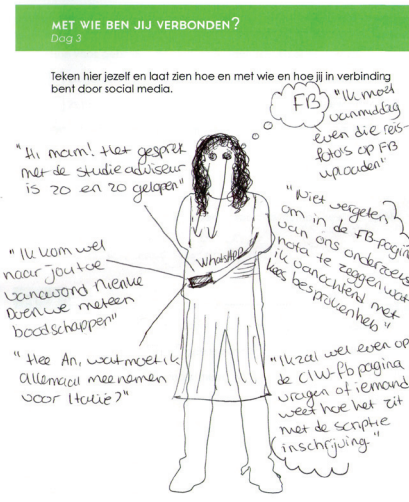 MET WIE BEN JIJ VERBONDEN?
Dag 3
Teken hier jezelf en laat zien hoe en met wie en hoe jij in verbinding
bent door social media.
FB
"Ik moet
vanmiddag
even die reis-
foto's op FB
uploaden"
"Hi mam! Het gesprek
met de studieadviseur
is zo en zo gelopen"
"Niet vergeten
om in de FB-pagina
van ons onderzoek
nota te zeggen wat
ik vanochtend met
Kees besproken heb"
WhatsApp
"Ik kom wel
naar jou toe
vanavond Nienke
Doen we meteen
boodschappen"
"Hee An, wat moet ik
allemaal meenemen
voor Italië?"
"Ik zal wel even op
de CIW-fb pagina
vragen of iemand
weet hoe het zit
met de scriptie
inschrijving."